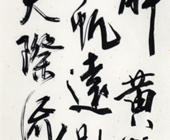 黃
帆遠影
天際流